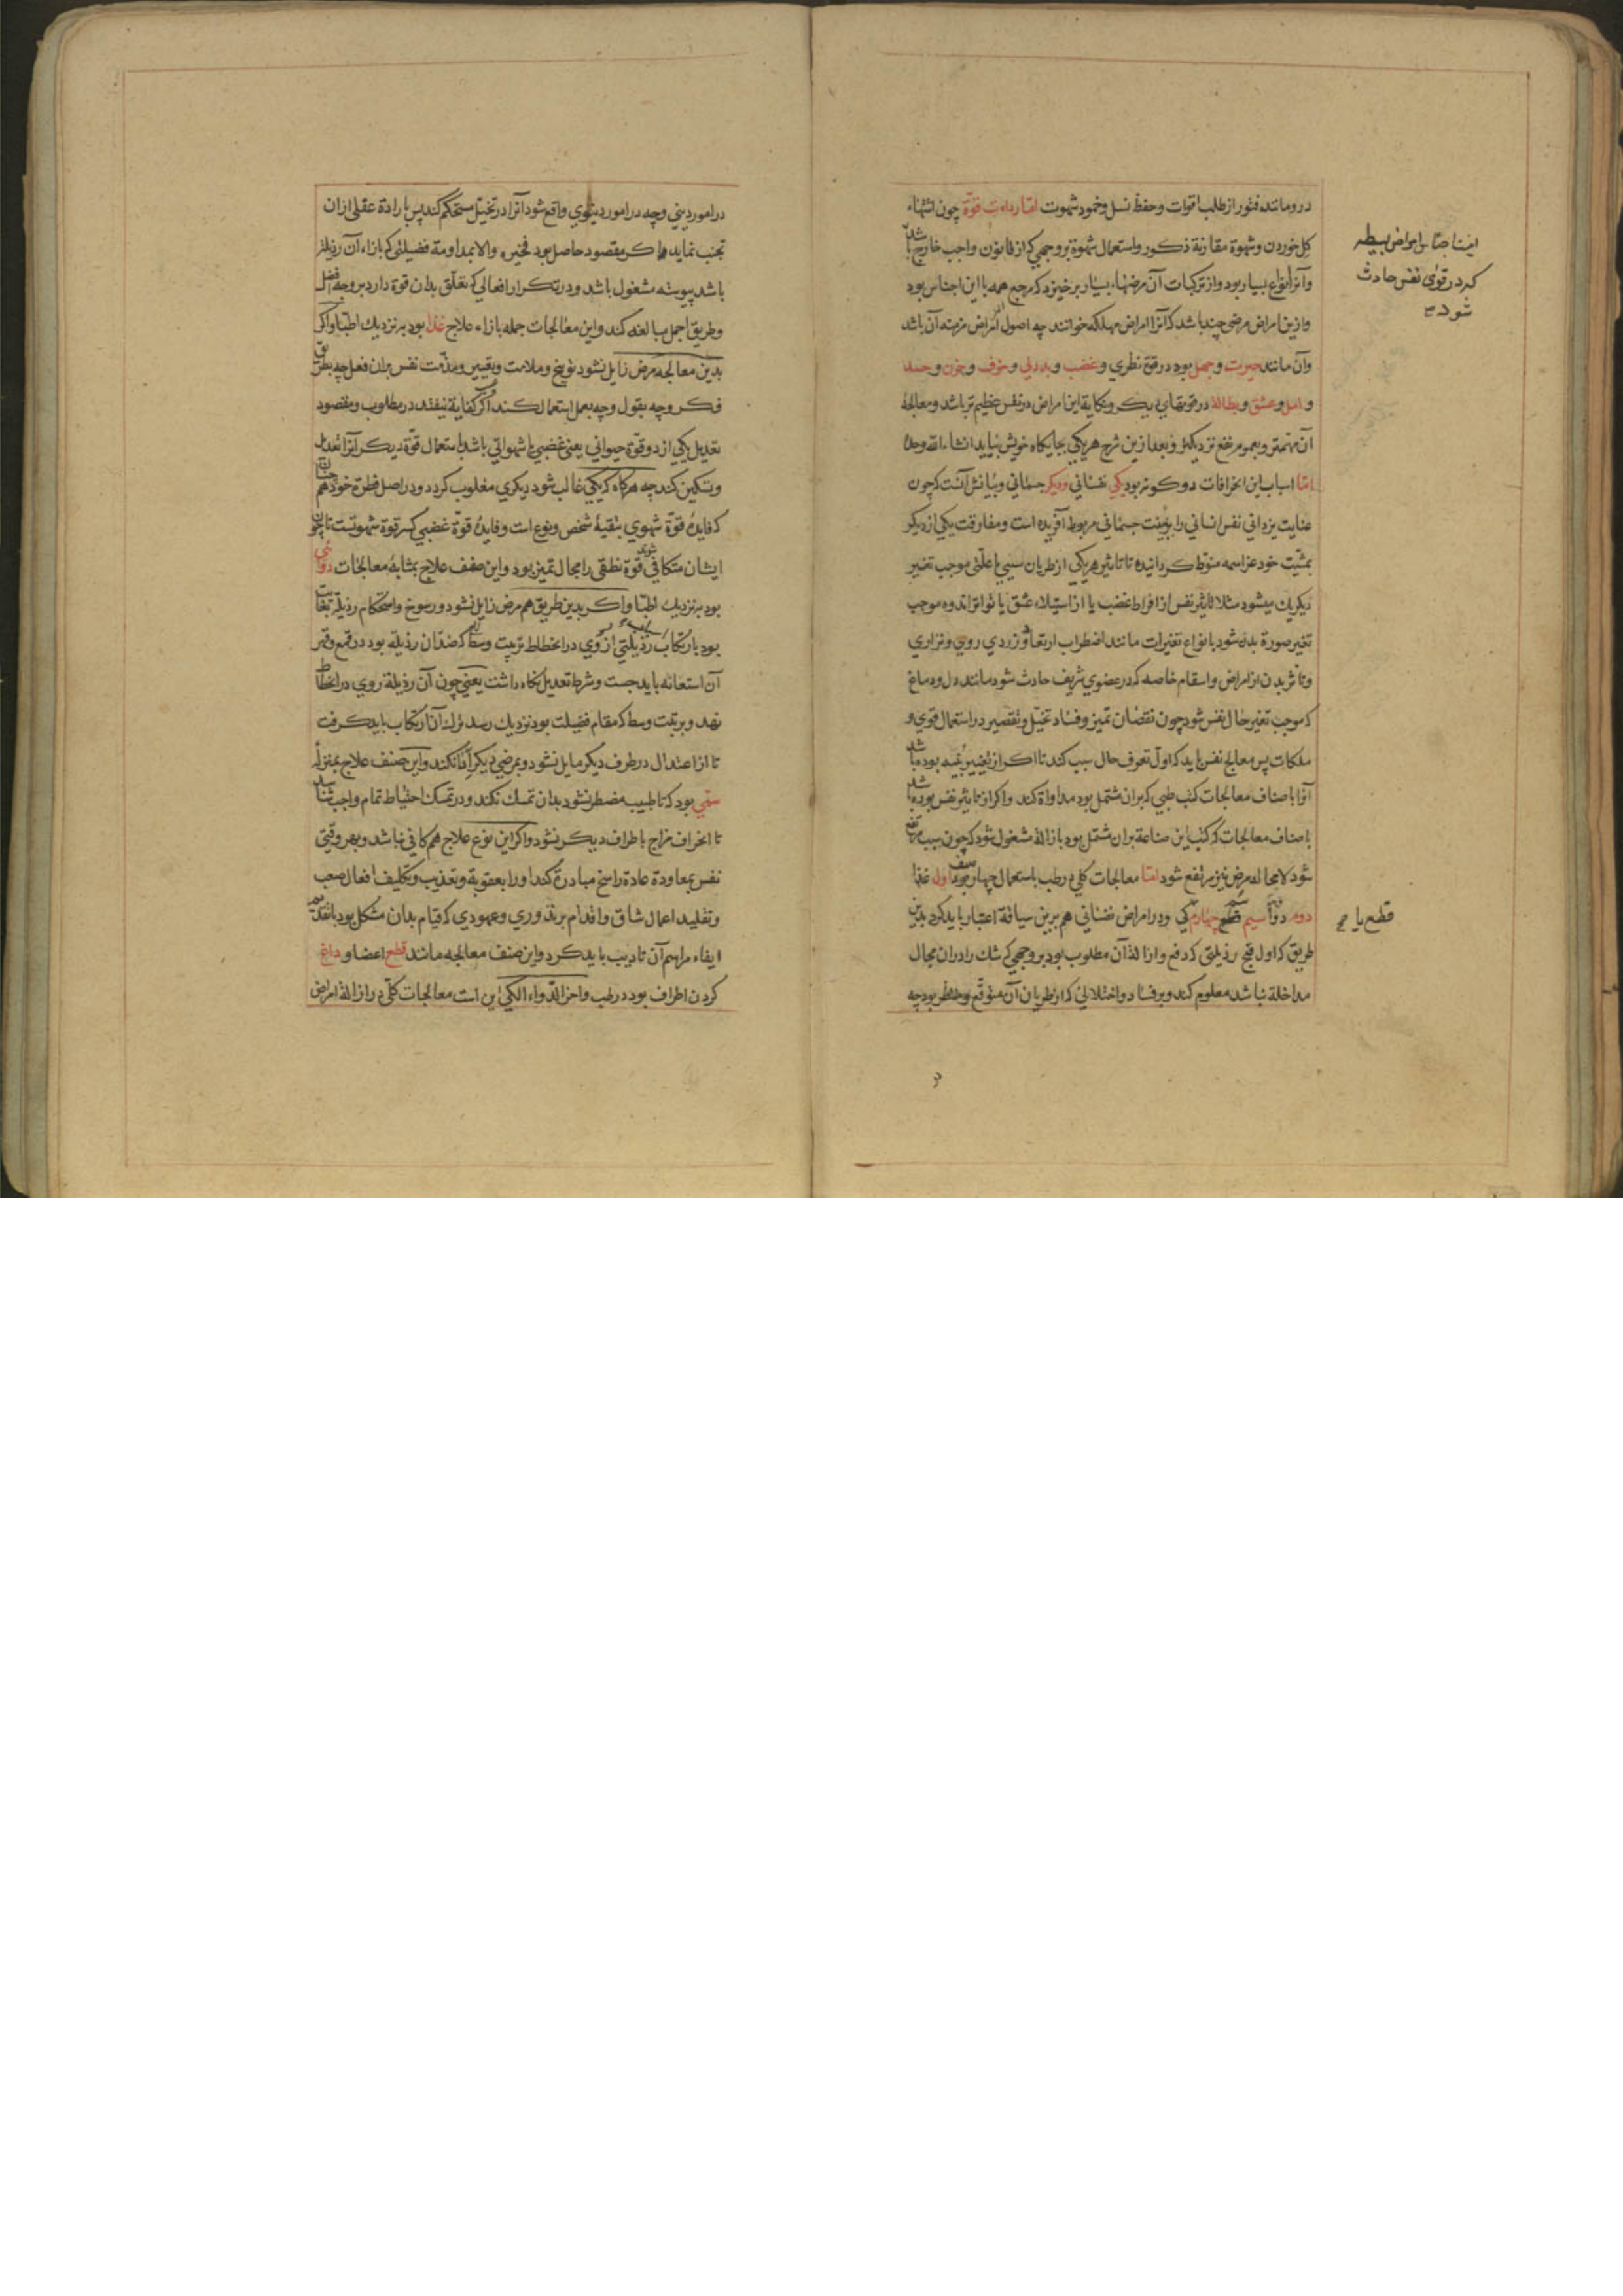 درو مانند فتور از طلب اقوات و حفظ نسل و خمود شهوت اما رداءت قوة چون اشتهاء
کل خوردن و شهوة مقارنة ذکور و استعمال شهوة بروجهی که از قانون واجب خارج باشد
و آنرا انواع بسیار بود و از ترکیبات آن مرضهاء بسیار برخیزد که مرجع همه با این اجناس بود
و ازین امراض مرضی چند باشد که آنرا امراض مهلکه خوانند چه اصول اکثر امراض مزمنه آن باشد
وآن مانند حیرت و جهل بود در قوة نظری و غضب و بددلی و خوف و حزن و حسد
و امل و عشق و بطالة در قوتهای دیگر و نکایة این امراض در نفس عظیم تر باشد و معالجهٔ
آن مهمتر و بعموم نفع نزدیکتر و بعد ازین شرح هر یکی بجایگاه خویش بیاید انشاء الله وحده
اما اسباب این انحرافات دو گونه بود یکی نفسانی و دیگر جسمانی و بیانش آنست که چون
عنایت یزدانی نفس انسانی را ببنیت جسمانی مربوط آفریده است و مفارقت یکی از دیگر
بمشیّت خود عز اسمه منوط گردانیده تا تاثیر هر یکی از طریان سببی یا علتی موجب تغییر
دیگریک میشود مثلا تاثیر نفس از افراط غضب یا از استیلاء عشق یا تواتر اندوه موجب
تغیر صورة بدن شود بانواع تغیرات مانند اضطراب و ارتعاد و زردی روی و نزاری
و تاثر بدن از امراض و اسقام خاصه که در عضوی شریف حادث شود مانند دل و دماغ
که موجب تغیر حال نفس شود چون نقصان تمیز و فساد تخیل و تقصیر در استعمال قوی و
ملکات پس معالج نفس باید که اول تعرف حال سبب کند تا اگر از تغییر بنیه بوده باشد
آنرا باصناف معالجات کتب طبی که بران مشتمل بود مداواة کند و اگر از تاثیر نفس بوده باشد
باصناف معالجات که کتب این صناعة بران مشتمل بود بازالهٔ مشغول شود که چون سبب مرتفع
شود لا محاله مرض نیز مرتفع شود اما معالجات کلی در طب باستعمال چهار صنف بود اول غذا
دوم دوا سیم سم چهارم کی و در امراض نفسانی هم برین سیاقة اعتبار باید کرد بدین
طریق که اول قبح رذیلتی که دفع و ازالهٔ آن مطلوب بود بروجهی که شک را دران مجال
مداخلة نباشد معلوم کند و بر فساد و اختلالی که از طریان آن متوقع و منتظر بود چه
اینست اجناس امراض بسیطه
که در قوای نفس حادث
شود
قطع یا
در
در امور دینی و چه در امور دنیوی واقف شود و آنرا در تخیّل مستحکم کند پس بارادة عقلی ازان
تجنب نماید فا کر مقصود حاصل بود فخیر والا بمداومة فضیلتی که بازاء آن رذیلت
باشد پیوسته مشغول باشد و در تکرار افعالی که تعلق بدان قوة دارد بر وجه افضل
و طریق اجمل مبالغه کند و این معالجات جمله بازاء علاج غذا بود بنزدیک اطبا و اگر
بدین معالجه مرض زایل نشود توبیخ و ملامت و تعییر و مذمت نفس بران فعل چه بطریق
فکر و چه بقول و چه بعمل استعمال کند اگر کفایة نیفتد در مطلوب و مقصود
تعدیل یکی از دو قوّة حیوانی یعنی غضبی یا شهوانی باشد باستعمال قوّة دیگر آنرا تعدیل
و تسکین کند چه هرگاه که یکی غالب شود دیگری مغلوب گردد و در اصل فطرة خود هم چنان
که فایدهٔ قوّة شهوی تبقیهٔ شخص و نوع است و فایدهٔ قوّة غضبی کسر قوة شهوتست تا چون
ایشان متکافی شوند قوة نطقی را مجال تمیز بود و این صنف علاج بمثابهٔ معالجات دوائی
بود بنزدیک اطبا و اگر بدین طریق هم مرض زایل نشود و رسوخ و استحکام رذیلة بغایت
بود بارتکاب اسباب رذیلتی از وی در انحطاط تربیت وسط که ضد آن رذیله بود در قمع و قهر
آن استعانه باید جست و شرط تعدیل نگاه داشت یعنی چون آن رذیلة روی در انحطاط
نهد و بربت وسط که مقام فضیلت بود نزدیک رسد ترک آن ارتکاب باید گرفت
تا از اعتدال در طرف دیگر مایل نشود و بمرضی دیگر ادا نکند و این صنف علاج بمنزلهٔ
سمی بود که تا طبیب مضطر نشود بدان تمسک نکند و در تمسک احتیاط تمام واجب شناسد
تا انحراف مزاج باطراف دیگر نشود و اگر این نوع علاج هم کافی نباشد و بهر وقتی
نفس بمعاودة عادة راسخ مبادرة کند او را بعقوبة و تعذیب و تکلیف افعال صعب
و تقلید اعمال شاق و اقدام بر نذوری و عهودی که قیام بدان مشکل بود با تقدیم
ایفاء مراسم آن تادیب باید کرد و این صنف معالجه مانند قطع اعضا و داغ
کردن اطراف بود در طب و آخر الدواء الکی این است معالجات کلی در ازالهٔ امراض